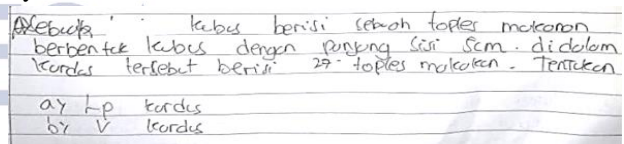 Sebuah kubus berisi sebuah toples makanan
berbentuk kubus dengan panjang sisi 5cm. didalam
kardus tersebut berisi 27 toples makakan. Tentukan
a) Lp kardus
b) V kardus